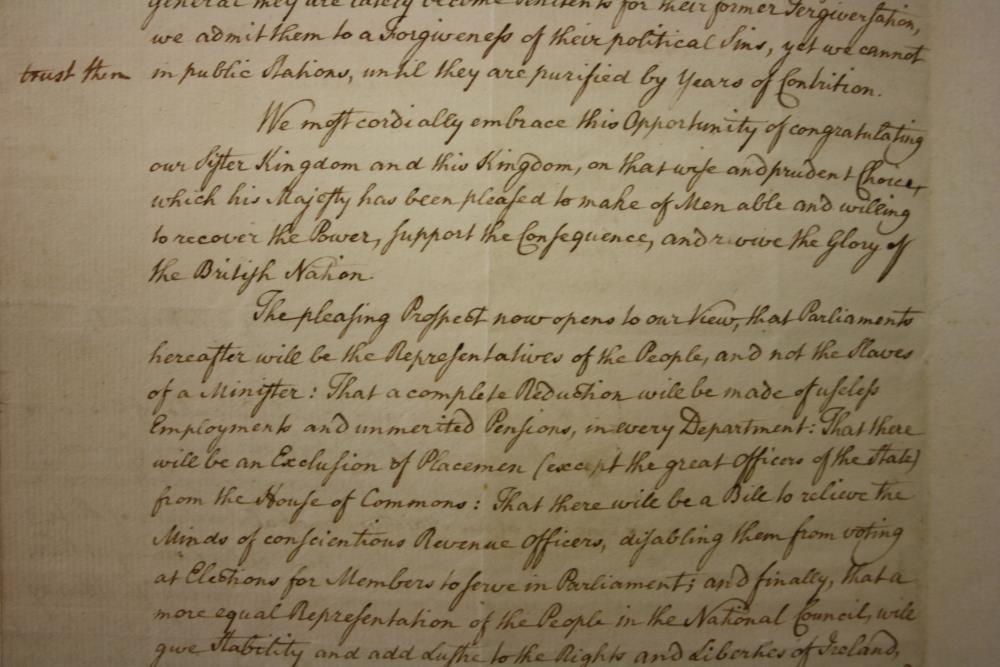 general they are lately become Penitents for their former Tergiversation,
we admit them to a Forgiveness of their political Sins, yet we cannot
trust them in public Stations, until they are purified by Years of Contrition.
We most cordially embrace this Opportunity of congratulating
our Sister Kingdom and this Kingdom, on that wise and prudent Choice,
which his Majesty has been pleased to make of Men able and willing
to recover the Power, support the Consequence, and revive the Glory of
the British Nation.
The pleasing Prospect now opens to our View, that Parliaments
hereafter will be the Representatives of the People, and not the Slaves
of a Minister: That a complete Reduction will be made of useless
Employments and unmerited Pensions, in every Department: That there
will be an Exclusion of Placemen (except the great Officers of the State)
from the House of Commons: That there will be a Bill to relieve the
Minds of conscientious Revenue Officers, disabling them from voting
at Elections for Members to serve in Parliament; and finally, that a
more equal Representation of the People in the National Council, will
give Stability and add Lustre to the Rights and Liberties of Ireland,